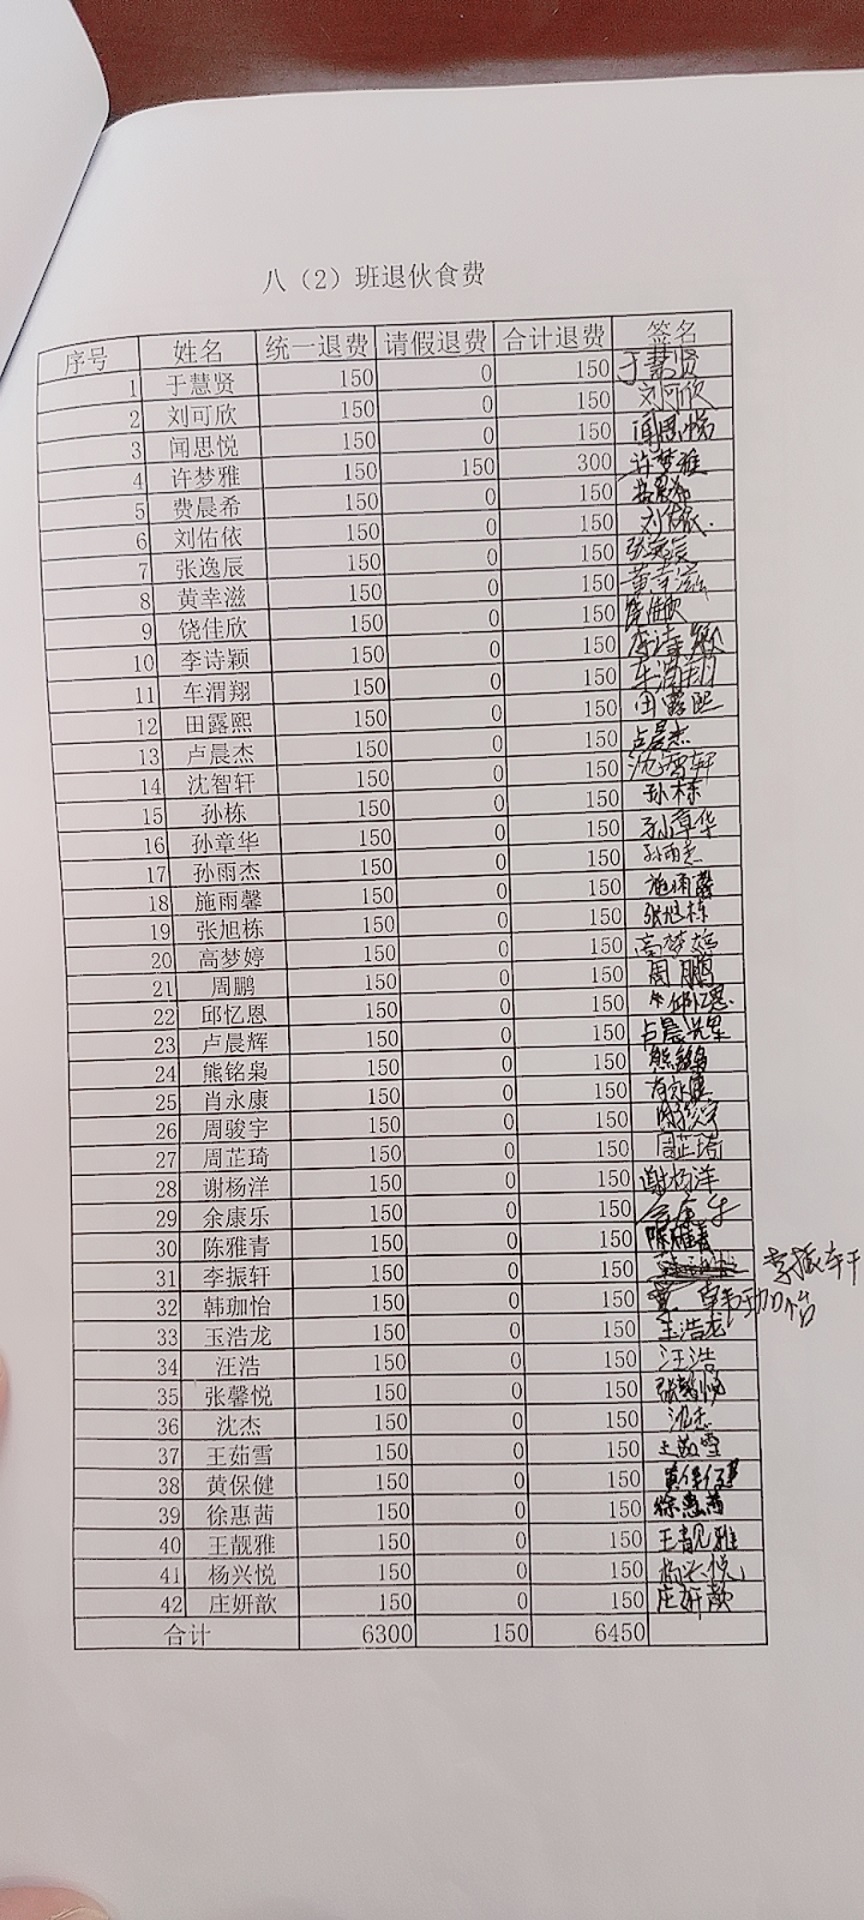 八（2）班退伙食费
序号 姓名 统一退费 请假退费 合计退费 签名
1 于慧贤 150 0 150 于慧贤
2 刘可欣 150 0 150 刘可欣
3 闻思悦 150 0 150 闻思悦
4 许梦雅 150 150 300 许梦雅
5 费晨希 150 0 150 费晨希
6 刘佑依 150 0 150 刘佑依
7 张逸辰 150 0 150 张逸辰
8 黄幸滋 150 0 150 黄幸滋
9 饶佳欣 150 0 150 饶佳欣
10 李诗颖 150 0 150 李诗颖
11 车渭翔 150 0 150 车渭翔
12 田露熙 150 0 150 田露熙
13 卢晨杰 150 0 150 卢晨杰
14 沈智轩 150 0 150 沈智轩
15 孙栋 150 0 150 孙栋
16 孙章华 150 0 150 孙章华
17 孙雨杰 150 0 150 孙雨杰
18 施雨馨 150 0 150 施雨馨
19 张旭栋 150 0 150 张旭栋
20 高梦婷 150 0 150 高梦婷
21 周鹏 150 0 150 周鹏
22 邱忆恩 150 0 150 邱忆恩
23 卢晨辉 150 0 150 卢晨辉
24 熊铭枭 150 0 150 熊铭枭
25 肖永康 150 0 150 肖永康
26 周骏宇 150 0 150 周骏宇
27 周芷琦 150 0 150 周芷琦
28 谢杨洋 150 0 150 谢杨洋
29 余康乐 150 0 150 余康乐
30 陈雅青 150 0 150 陈雅青
31 李振轩 150 0 150 李振轩
32 韩珈怡 150 0 150 韩珈怡
33 玉浩龙 150 0 150 玉浩龙
34 汪浩 150 0 150 汪浩
35 张馨悦 150 0 150 张馨悦
36 沈杰 150 0 150 沈杰
37 王茹雪 150 0 150 王茹雪
38 黄保健 150 0 150 黄保健
39 徐惠茜 150 0 150 徐惠茜
40 王靓雅 150 0 150 王靓雅
41 杨兴悦 150 0 150 杨兴悦
42 庄妍歆 150 0 150 庄妍歆
合计 6300 150 6450